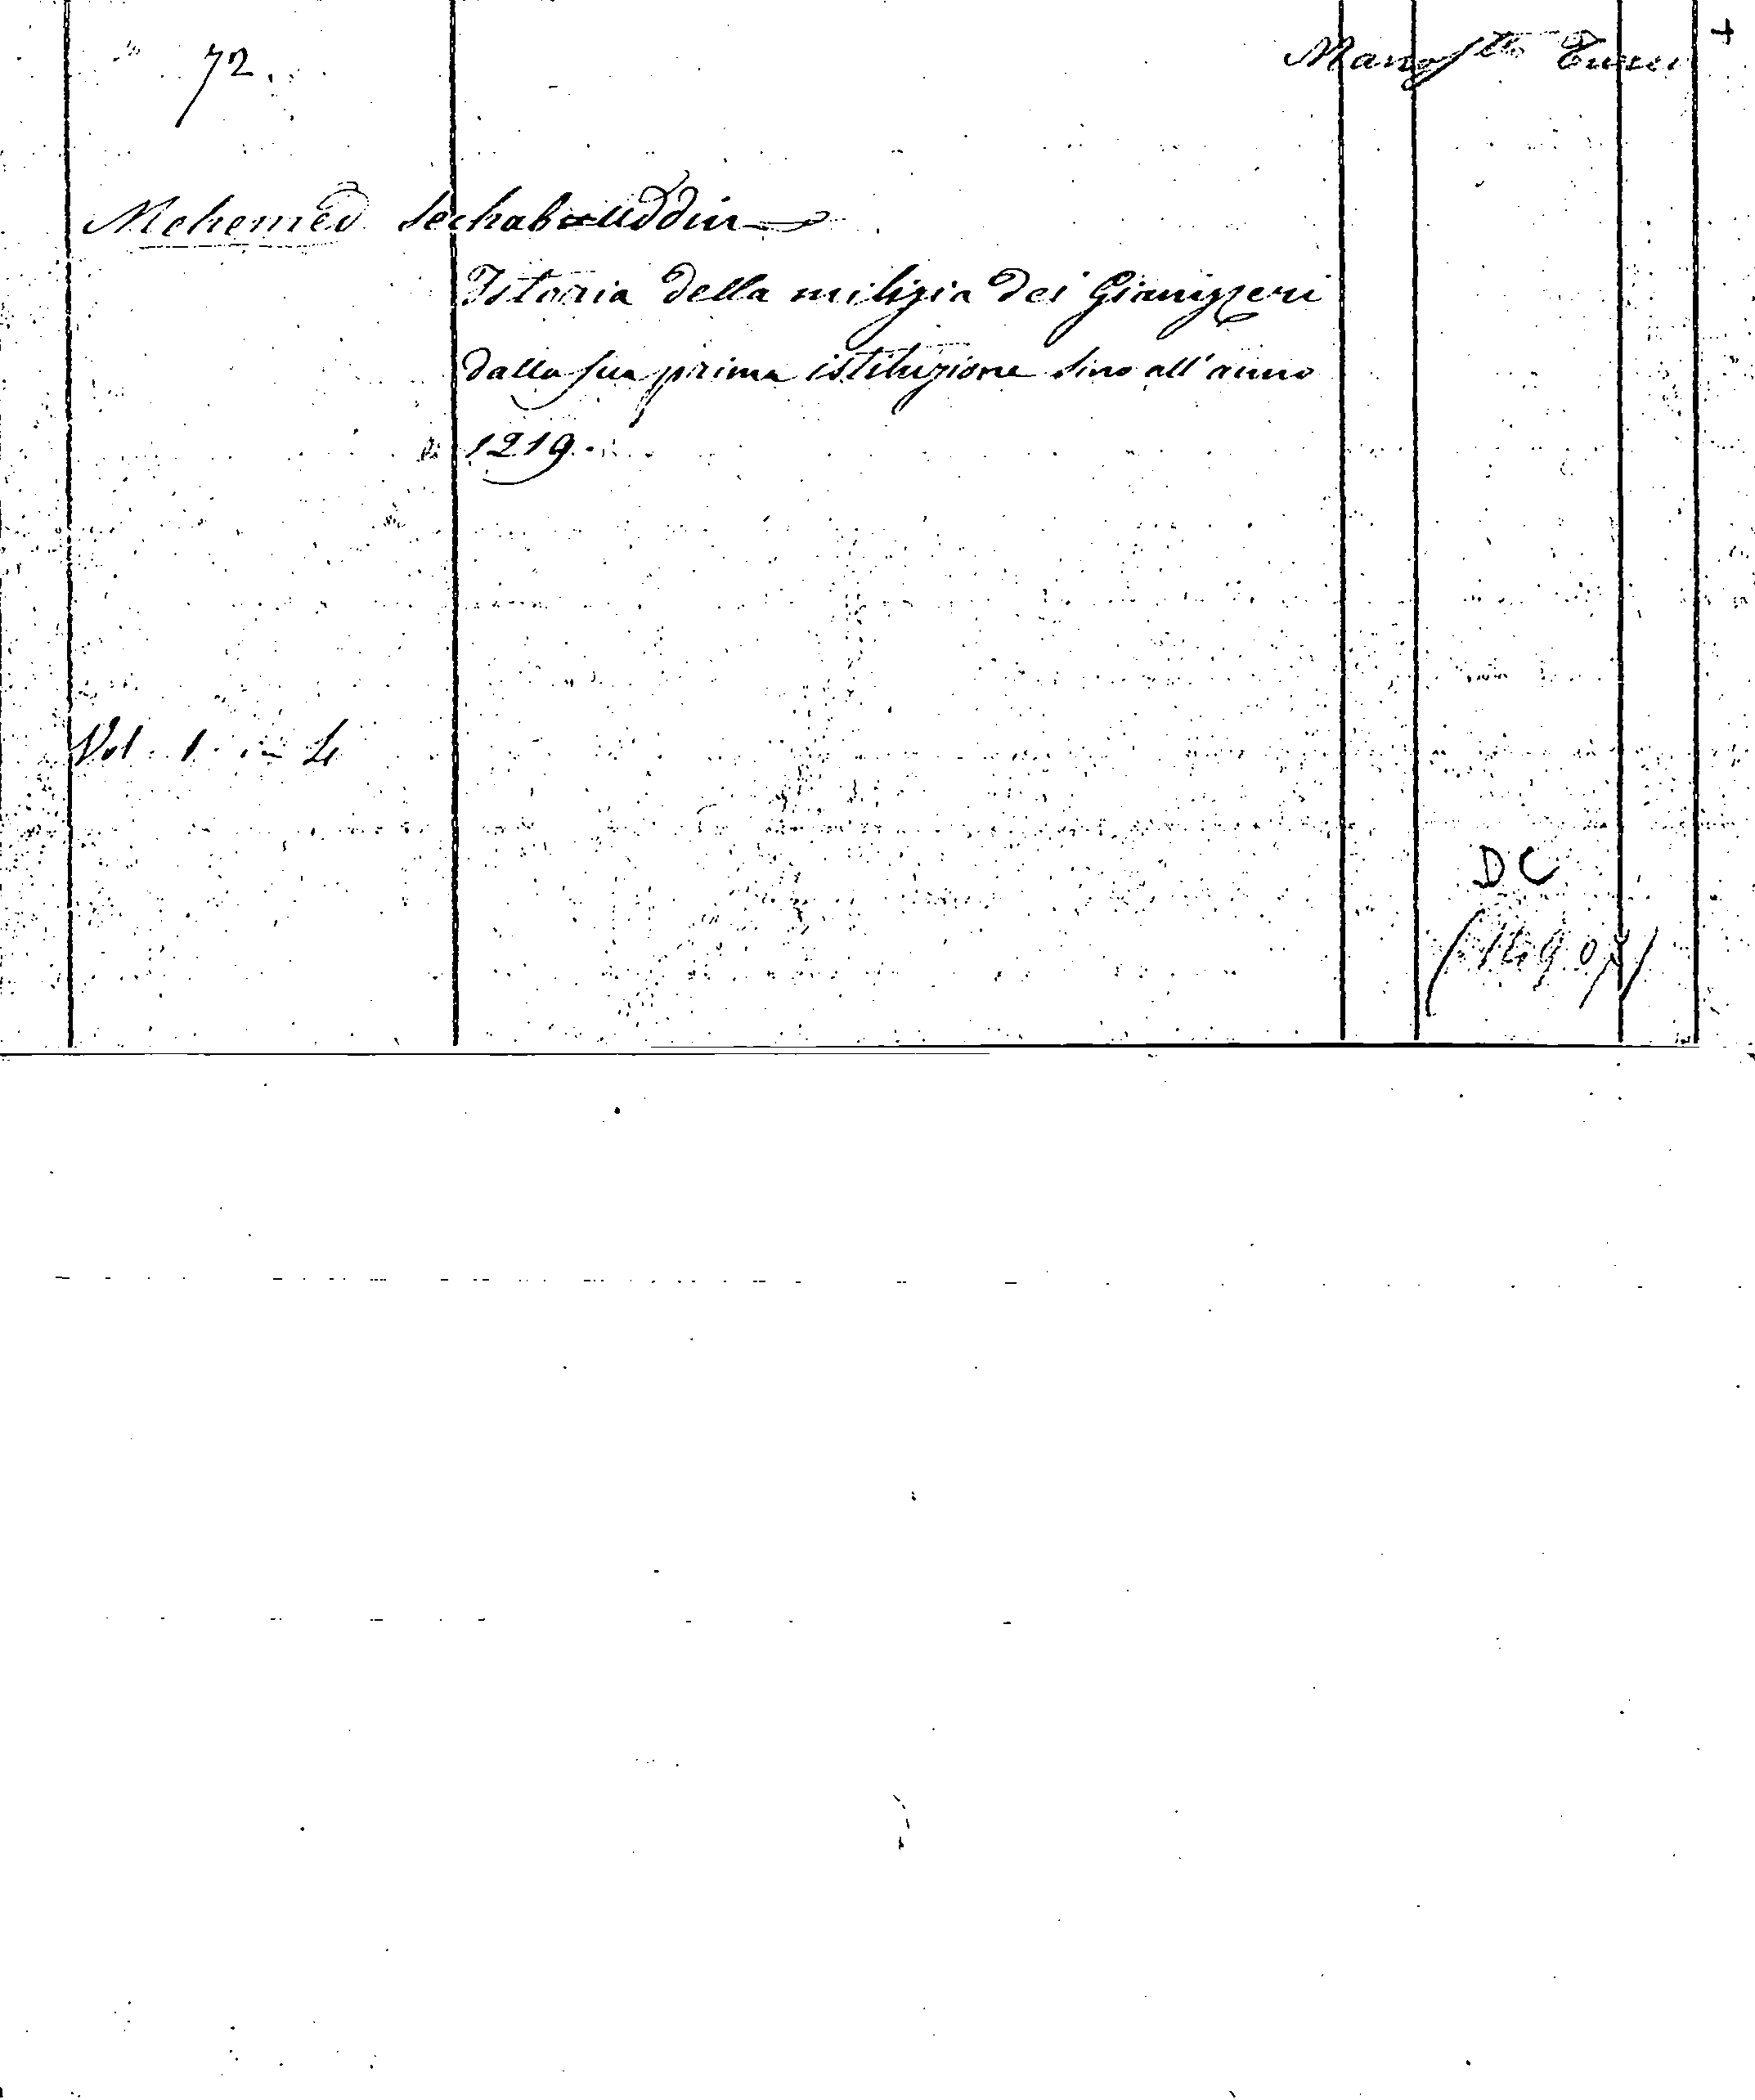 72.
Manos^tto Turco
Mehemed Sechab-uddin
Istoria della milizia dei Gianizzeri
dalla sua prima istituzione sino all'anno
1219.
Vol. 1. in 4
DC